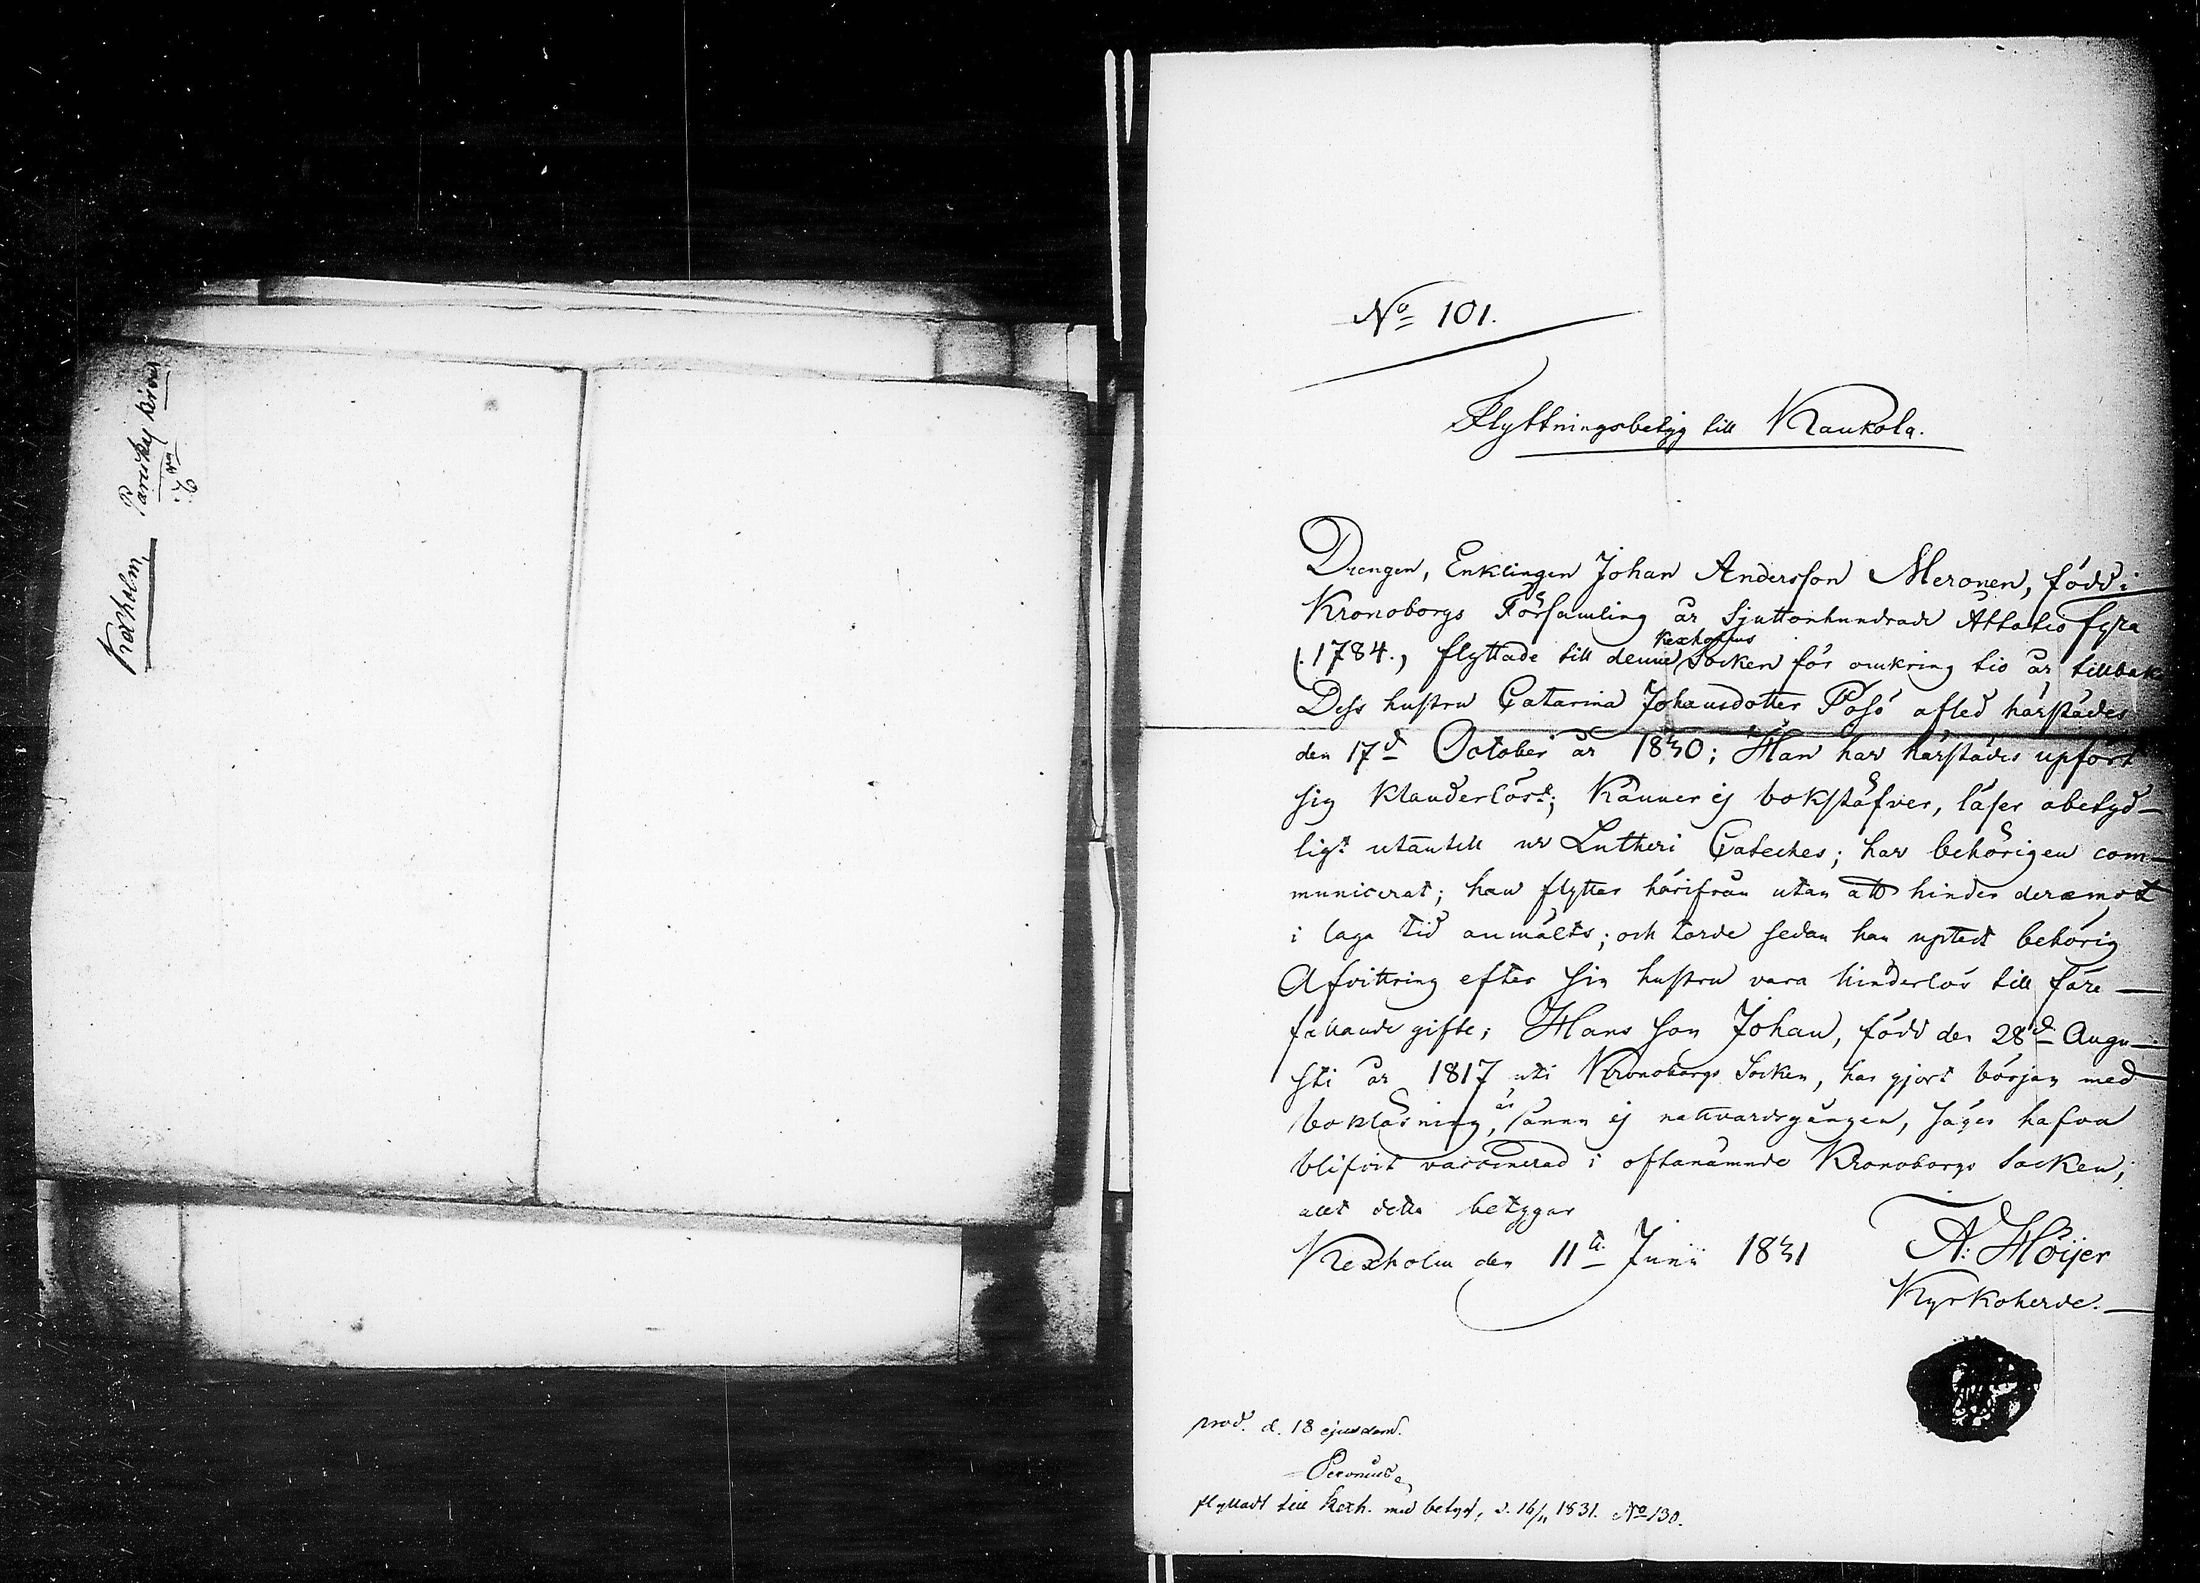 Kexholm,
Nº 101.
Flyttningsbetyg till Kaukola.
Drengen, Enklingen Johan Andersson Meronen, född i
Kronoborgs Församling år Sjuttonhundrade Åttatio fyra
(.1784., flyttade till denne Kexholms Socken för omkring tio år tillbaka
Dess hustru Catarina Johansdotter Posó afled härstädes
den 17d October år 1830; Han har härstädes upfört
sig klanderlöst; känner ej bokstäfver, läser obetyd-
ligt utantill ur Lutheri Cateches; har behörigen com-
municerat; han flyttar härifrån utan att hinder deremot
i laga tid anmälts; och torde sedan han uptedt behörig
Afvittring efter sin hustru vara hinderlös till före-
fallande gifte; Hans son Johan, född den 28d Augu-
sti år 1817 uti Kronoborgs Socken, har gjort början med
bokläsning, är ännu ej nattvardsgången, säges hafva
blifvit vaccinerad i oftanämnde Kronoborgs Socken;
allt detta betygar
Kexholm den 11te Junii 1831
A: Höijer
Kyrkoherde.
prod. d. 18 ejusdem.
Peronius
flyttadt till Kexh. med betyg, d. 16/11 1831. Nº 130.